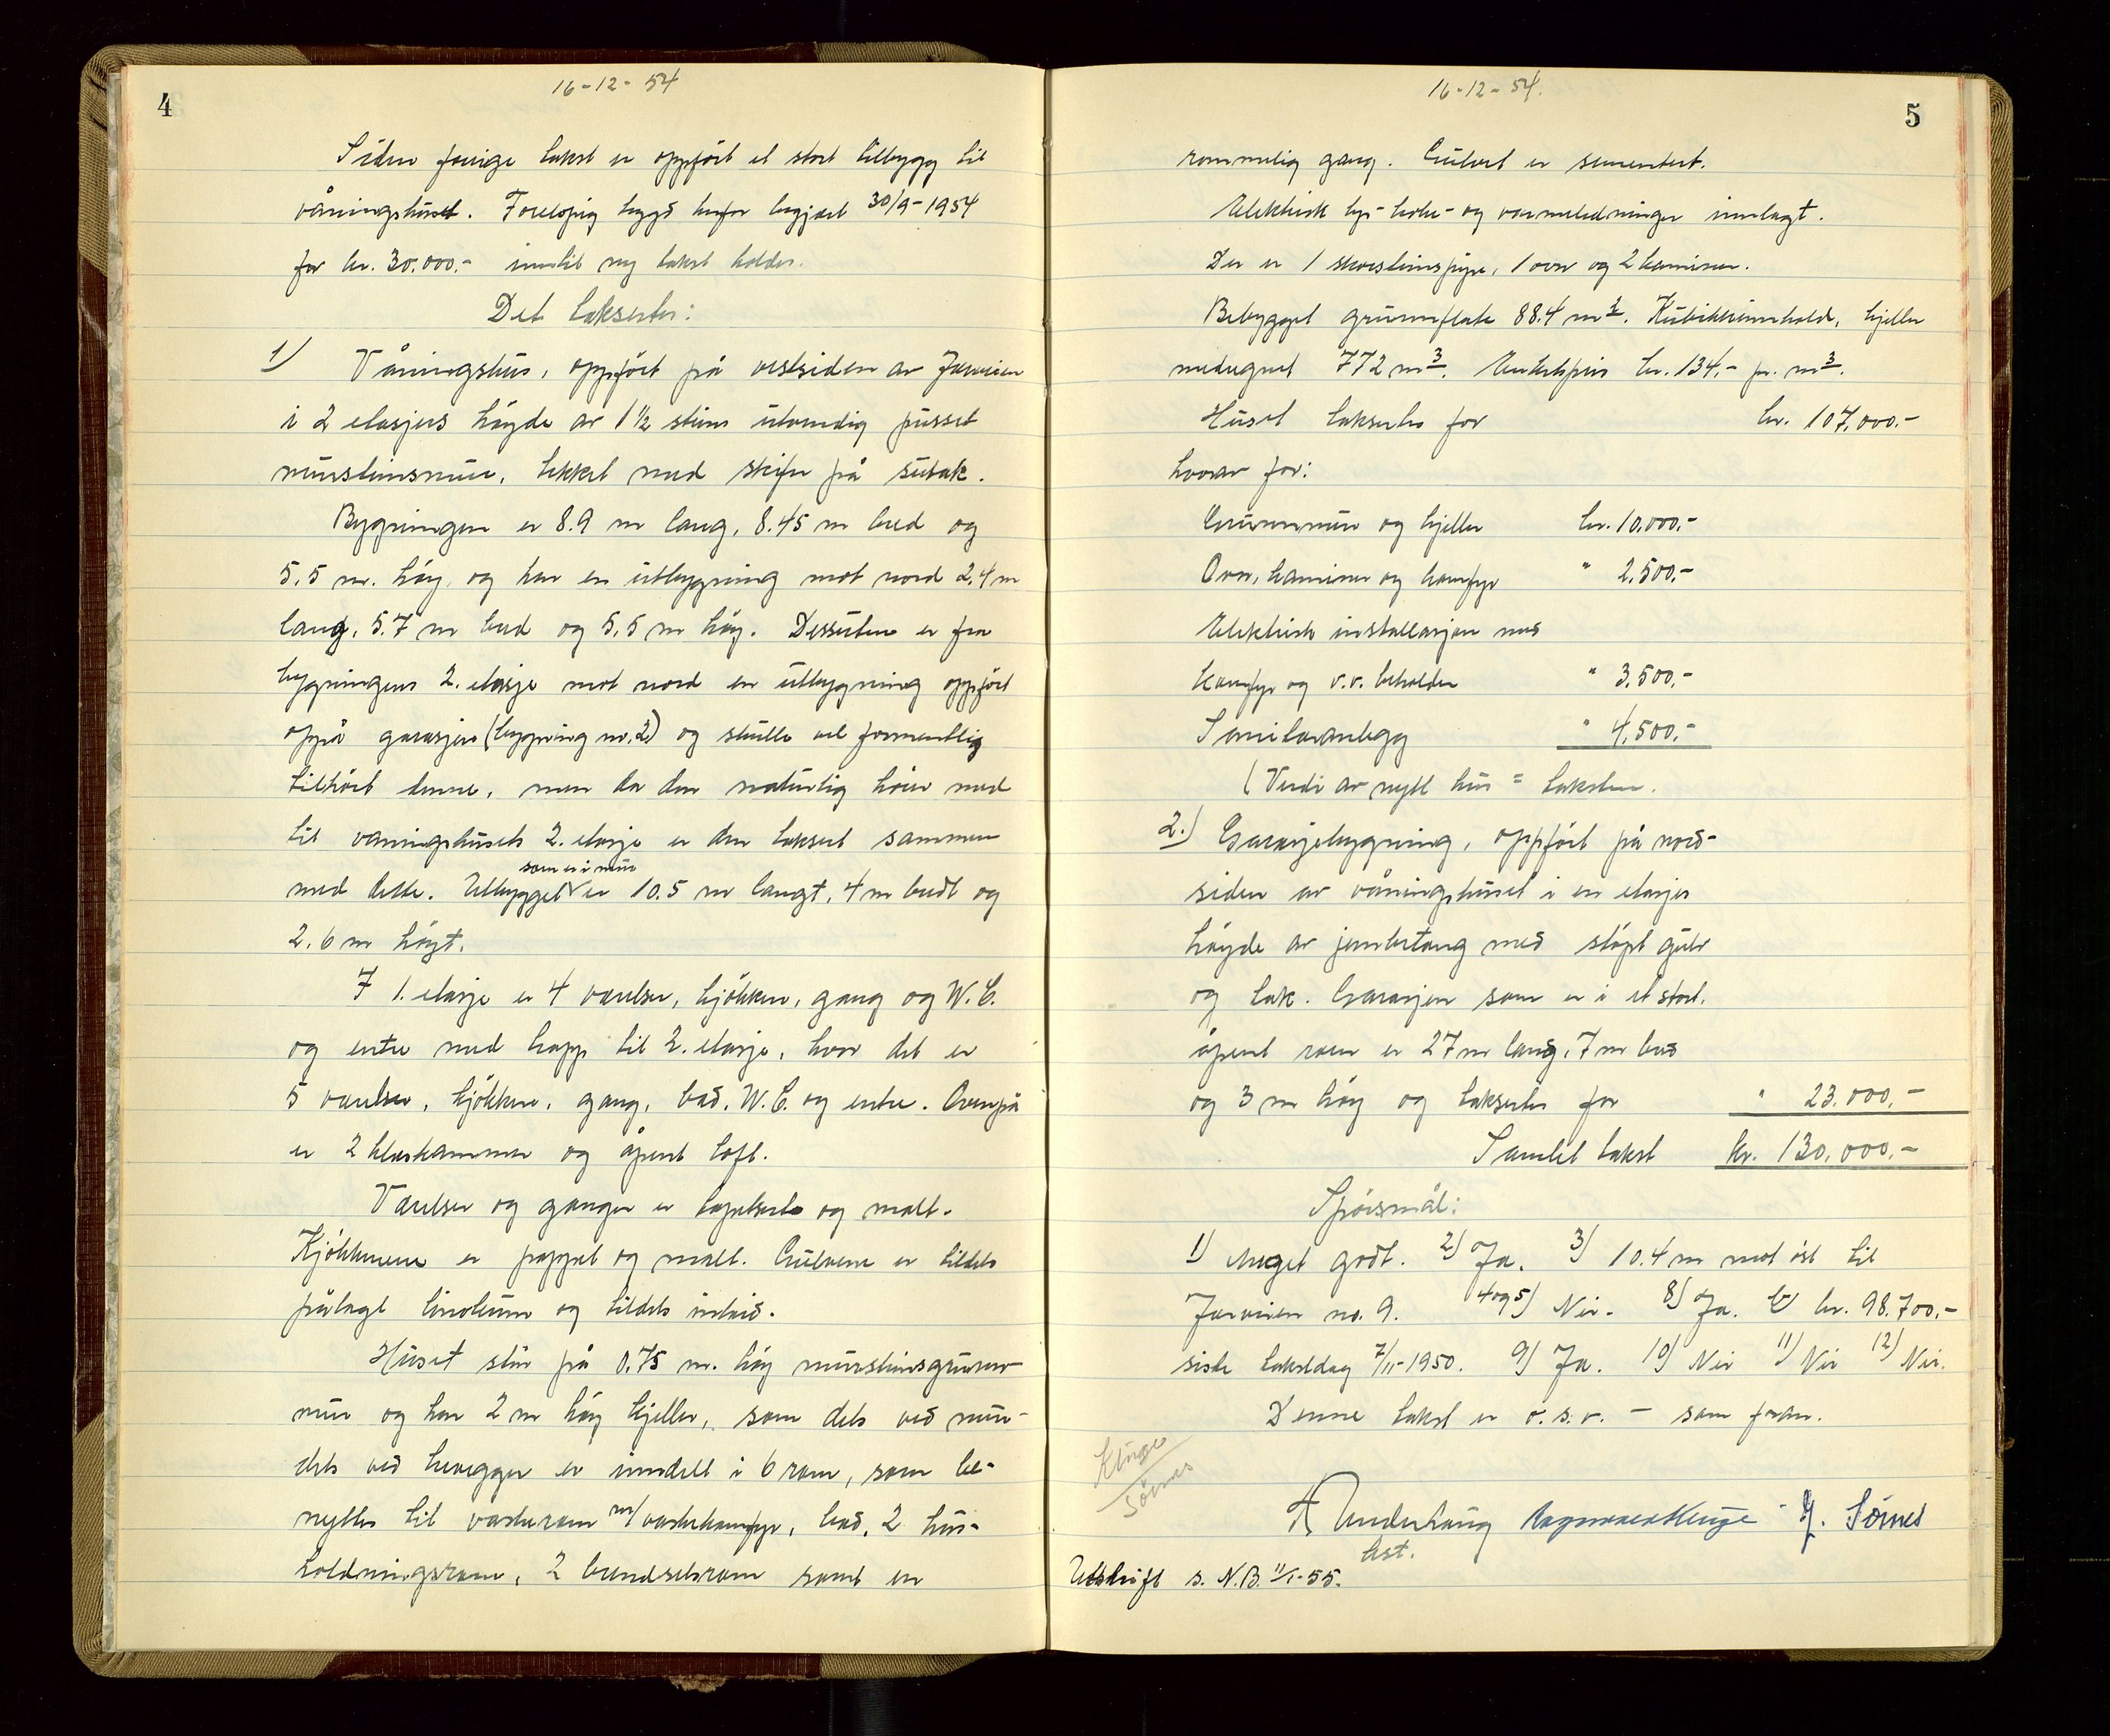 4
16-12-54
Siden forrige takst er oppført et stort tilbygg til
våningshuset. Foreløpig bygd herfor begjært 30/9-1954
for kr. 30.000.- inntil ny takst holdes.
Det takseres:
1) Våningshus, oppført på vestsiden av Jarveien
i 2 etasjers høyde av 1 1/2 stens utvendig pusset
murstensmur, tekket med skifer på sutak.
Bygningen er 8.9 m lang, 8.45 m bred og
5.5 m. høy, og har en utbygning mot nord 2.4 m
lang, 5.7 m bred og 5.5 m høy. Dessuten er fra
bygningens 2. etasje mot nord en utbygning oppført
oppå garasjen (bygning nr. 2) og skulle vel formentlig
tilhørt denne, men da den naturlig hører med
til våningshusets 2. etasje er den taksert sammen
som er i mur
med dette. Utbygget er 10.5 m langt, 4 m bredt og
2.6 m høyt.
I 1. etasje er 4 værelser, kjøkken, gang og W.C.
og entre med trapp til 2. etasje, hvor det er
5 værelser, kjøkken, gang, bad, W.C. og entre. Ovenpå
er 2 kleskammer og åpent loft.
Værelser og ganger er tapetsert og malt.
Kjøkkenene er pappet og malt. Gulvene er tildels
pålagt linoleum og tildels inlaid.
Huset står på 0.75 m. høy murstensgrunn-
mur og har 2 m høy kjeller, som dels ved mur-
dels ved trevegger er inndelt i 6 rom, som be-
nyttes til vaskerom m/vaskekomfyr, bad, 2 hus-
holdningsrom, 2 brendselsrom samt en
5
16-12-54.
rommelig gang. Gulvet er sementert.
Elektrisk lys- koke- og varmeledninger innlagt.
Der er 1 skorstenspipe, 1 ovn og 2 kaminer.
Bebygget grunnflate 88.4 m2. Kubikkinnhold, kjeller
medregnet 772 m3. Enhetspris kr. 134.- pr. m3.
Huset takseres for kr. 107.000.-
hvorav for:
Grunnmur og kjeller kr. 10.000.-
Ovn, kaminer og komfyr " 2.500.-
Elektrisk installasjon med
komfyr og v.v. beholder " 3.500.-
Sanitæranlegg " 4.500.-
(Verdi av nytt hus = taksten.
2.) Garasjebygning, oppført på nord-
siden av våningshuset i en etasjes
høyde av jernbetong med støpt gulv
og tak. Garasjen som er i et stort,
åpent rom er 27 m lang, 7 m bred
og 3 m høy og takseres for " 23.000.-
Samlet takst kr. 130.000.-
Spørsmål:
1) Meget godt. 2) Ja. 3) 10.4 m mot øst til
Jarveien nr. 9. 4 og 5) Nei. 8) Ja. b) kr. 98.700.-
siste takstdag 7/11-1950. 9) Ja. 10) Nei 11) Nei 12) Nei.
Denne takst er o.s.v. - som foran.
Klinge
Sørnes
Underhaug J. Sörnes
ast.
Utskrift s. N.B. 11/1-55.